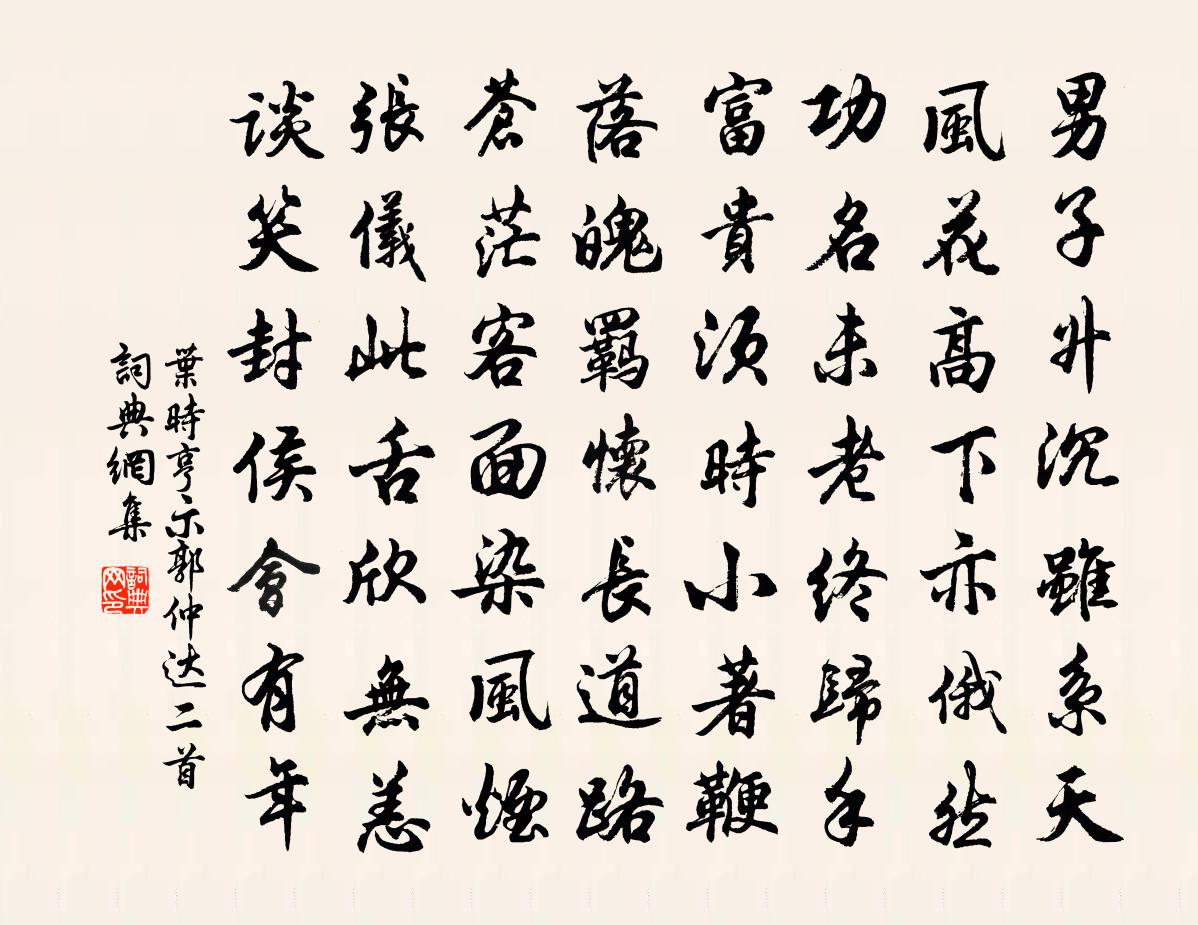 男子升沉雖系天
風花高下亦俄然
功名未老終歸手
富貴須時小著鞭
落魄羈懷長道路
蒼茫客面染風煙
張儀此舌欣無恙
谈笑封侯會有年
葉時亨示郭仲达二首
詞典網集
詞典网印